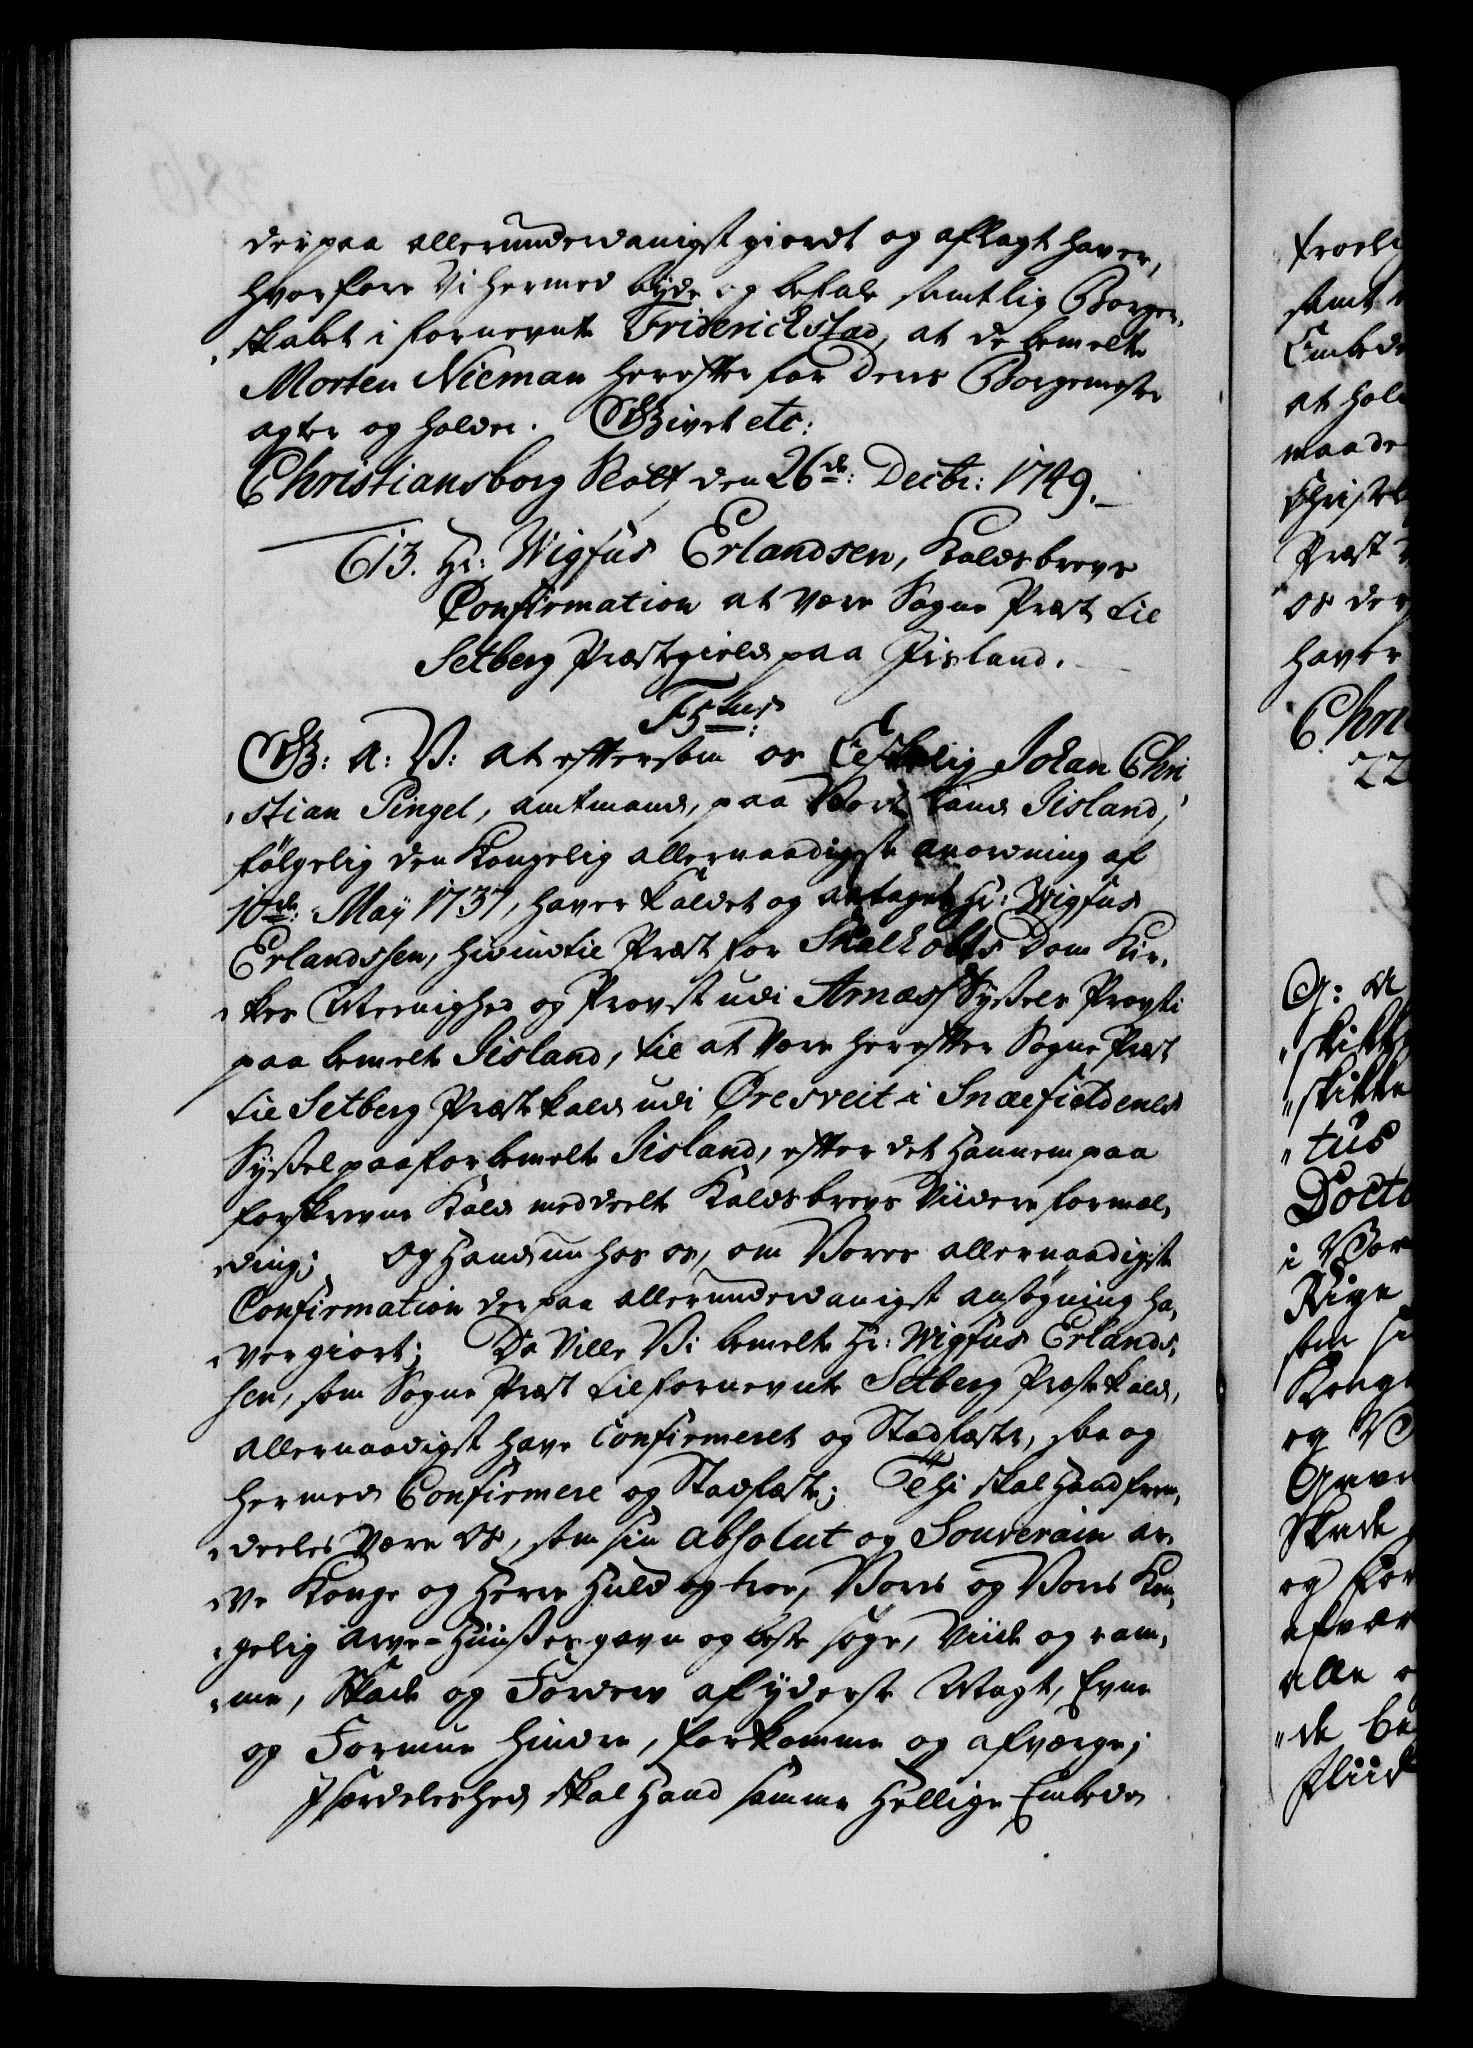 derpaa allerunderdanigst giordt og aflagt haver,
hvorfore Vi hermed byde og befale samtlig Borger-
skabet i fornevnte Friderichstad, at de bemelte
Morten Nieman herefter for deris Borgemester
agter og holder. Givet etc:
Christiansborg Slott den 26de: Decbr: 1749.
613. Hr: Wigfus Erlandsen, Kaldsbrevs
Confirmation at være Sogne Præst til
Setberg Præstegield paa Iisland.
F5tus:
G: A: V: at eftersom os Elskelig Johan Chri-
stian Pingel, amtmand, paa Vort Land Iisland,
følgelig den Kongelig allernaadigste anordning af
10de: Maÿ 1737, haver kaldet og antaget Hr: Wigfus
Erlandssen, hidindtil Præst for Skalholts Dom Kir-
kes Meenighed og Provst udi Arness Syssels Provsti
paa bemelte Iisland, til at være herefter Sogne Præst
til Setberg Præstekald udi Øresveit i Snæefieldenes
Syssel paa forbemelte Iisland, efter det hannem paa
forskrevne Kald meddeelte Kaldsbrevs Viidere formel-
ding; Og Hand nu hos os, om Vores allernaadigste
Confirmation derpaa allerunderdanigst ansøgning ha-
ver giort; Da Ville Vi bemelte Hr: Wigfus Erlands-
sen, som Sogne Præst til fornevnte Setberg Præstekald,
allernaadigst have Confirmeret og Stadfæste, saa og
hermed Confirmere og Stadfæste; Thi skal Hand frem-
deeles være Os, som sin absolut og Souverain ar-
ve Konge og Herre Huld og troe, Vores og Voris Kon-
gelig Arve-Huusses gavn og beste søge, Viide og ram-
me, Skade og Forderv af yderste Magt, Evne
og Formue hindre, forkomme og afværge;
I særdeleshed skal Hand samme Hellige Embede